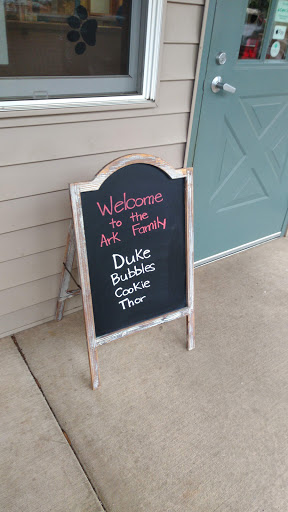 Welcome
to the
Ark Family
Duke
Bubbles
Cookie
Thor